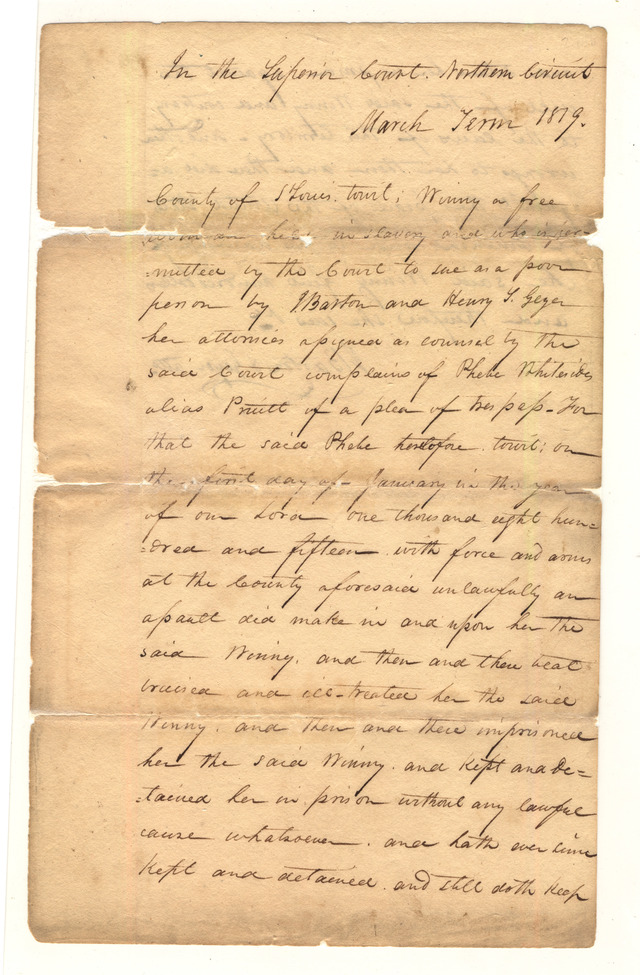 In the Superior Court. Northern Circuit
March Term 1819.
County of S Louis. towit; Winny a free
woman held in slavery and who is per=
mitted by the Court to sue as a poor
person by J Barton and Henry S. Geyer
her attornies assigned as counsel by the
said Court complains of Phebe Whitesides
alias Pruitt of a plea of trespass - For
that the said Phebe heretofore. towit; on
the first day of January in the year
of our Lord one thousand eight hun=
=dred and fifteen. with force and arms
at the County aforesaid unlawfully an
assault did make in and upon her the
said Winny. and then and there beat
bruised and ill-treated her the said
Winny. and then and there imprisoned
her the said Winny. and kept and de=
=tained her in prison without any lawful
cause whatsoever. and hath ever since
kept and detained. and still doth keep